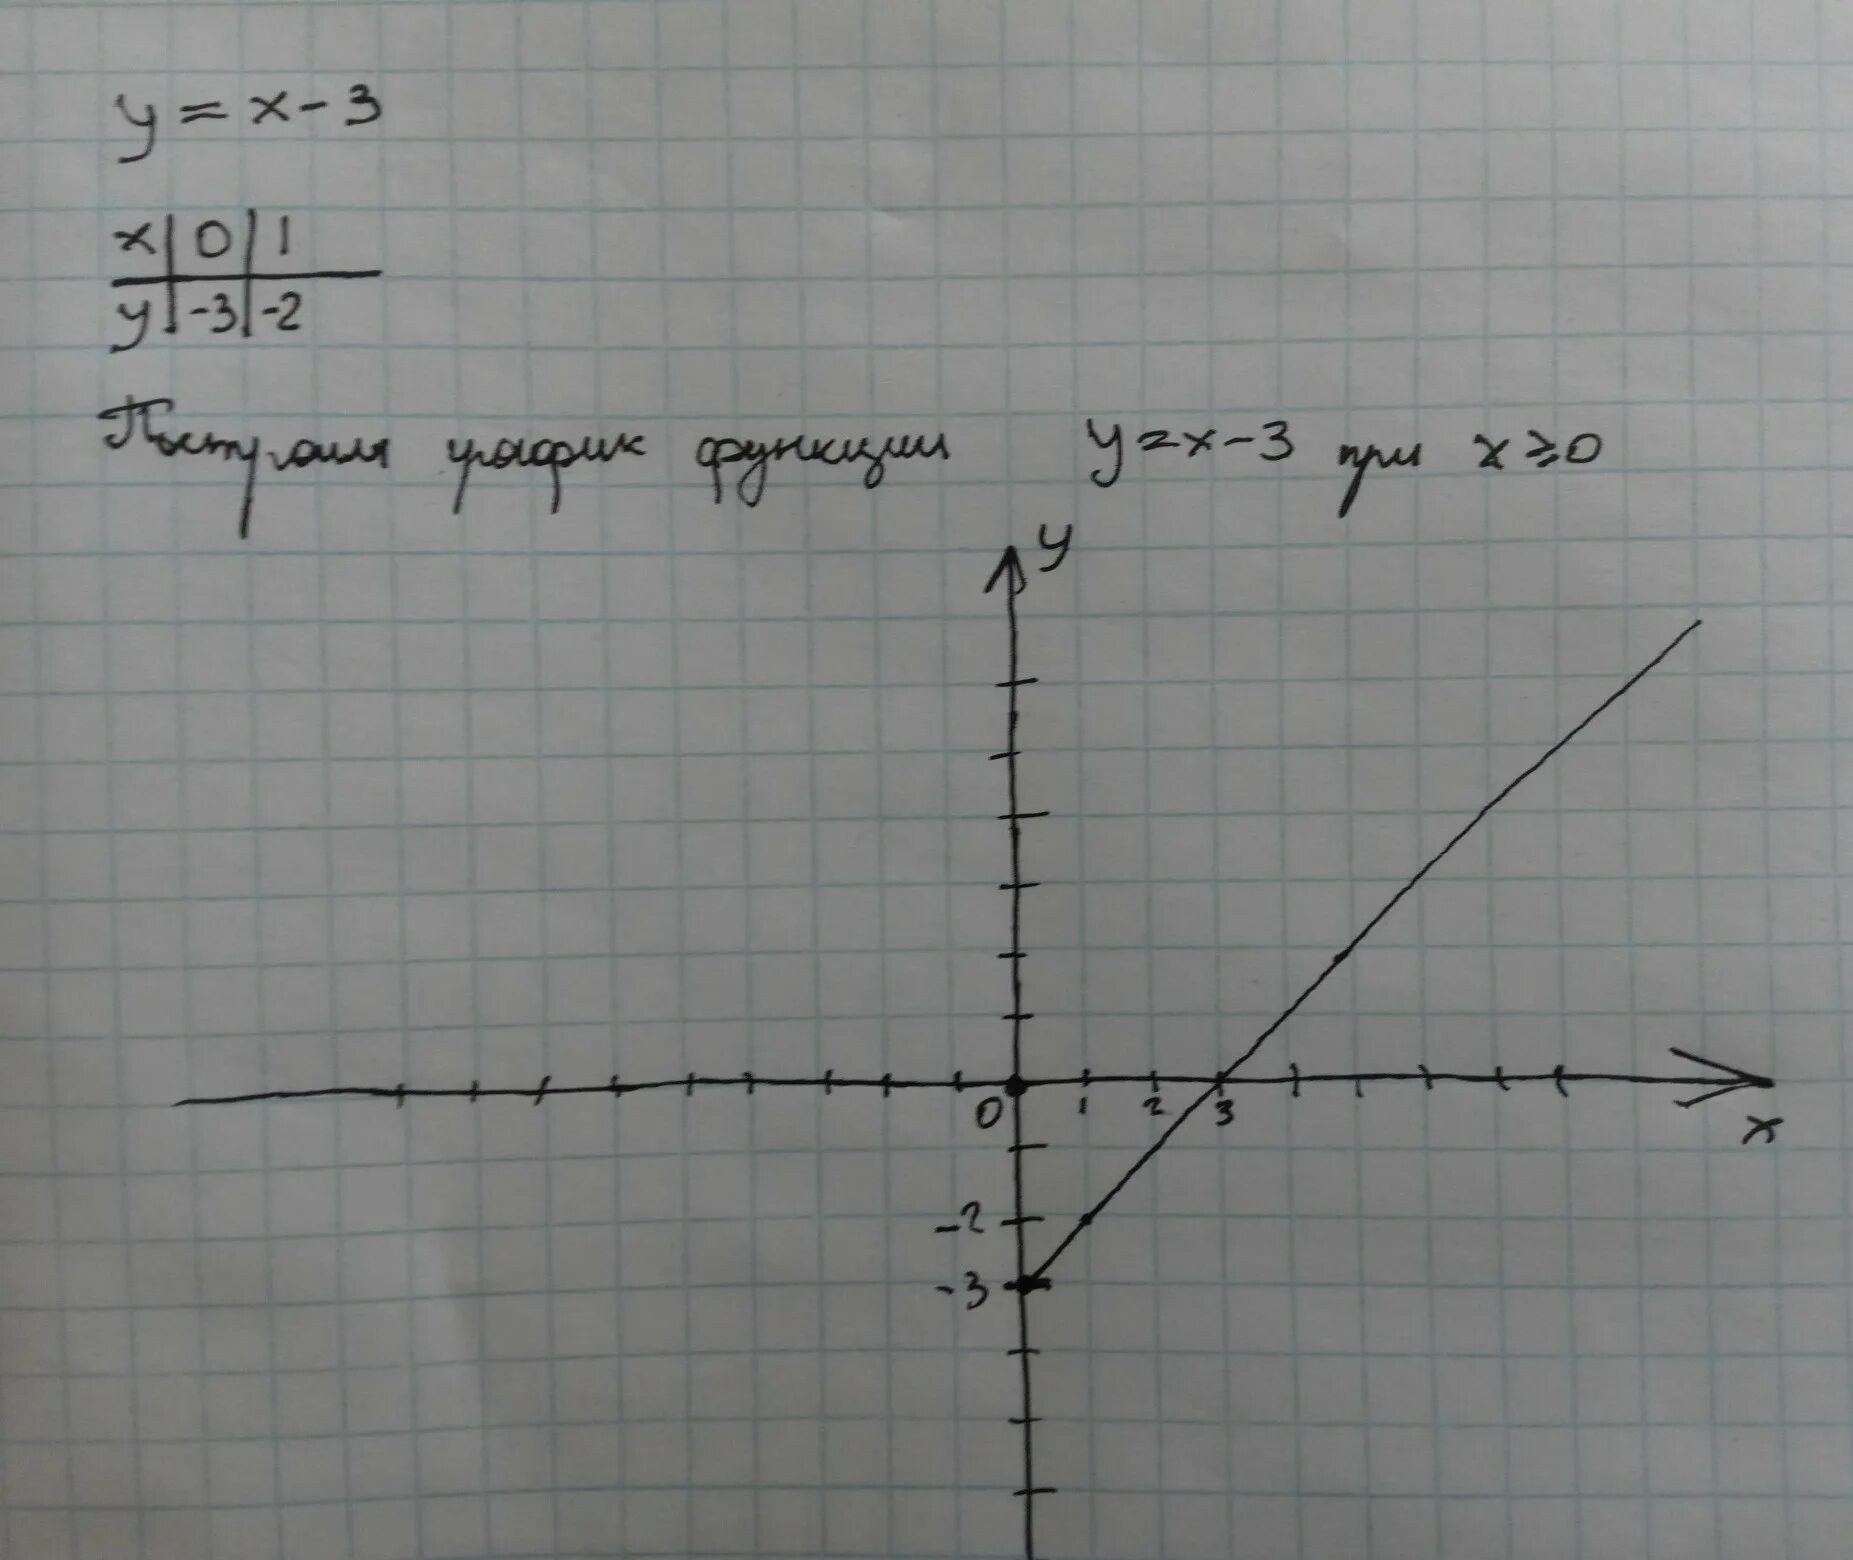 y = x - 3
x | 0 | 1
y | -3 | -2
Построим график функции y = x - 3 при x ≥ 0
y
0 1 2 3
x
-2
-3